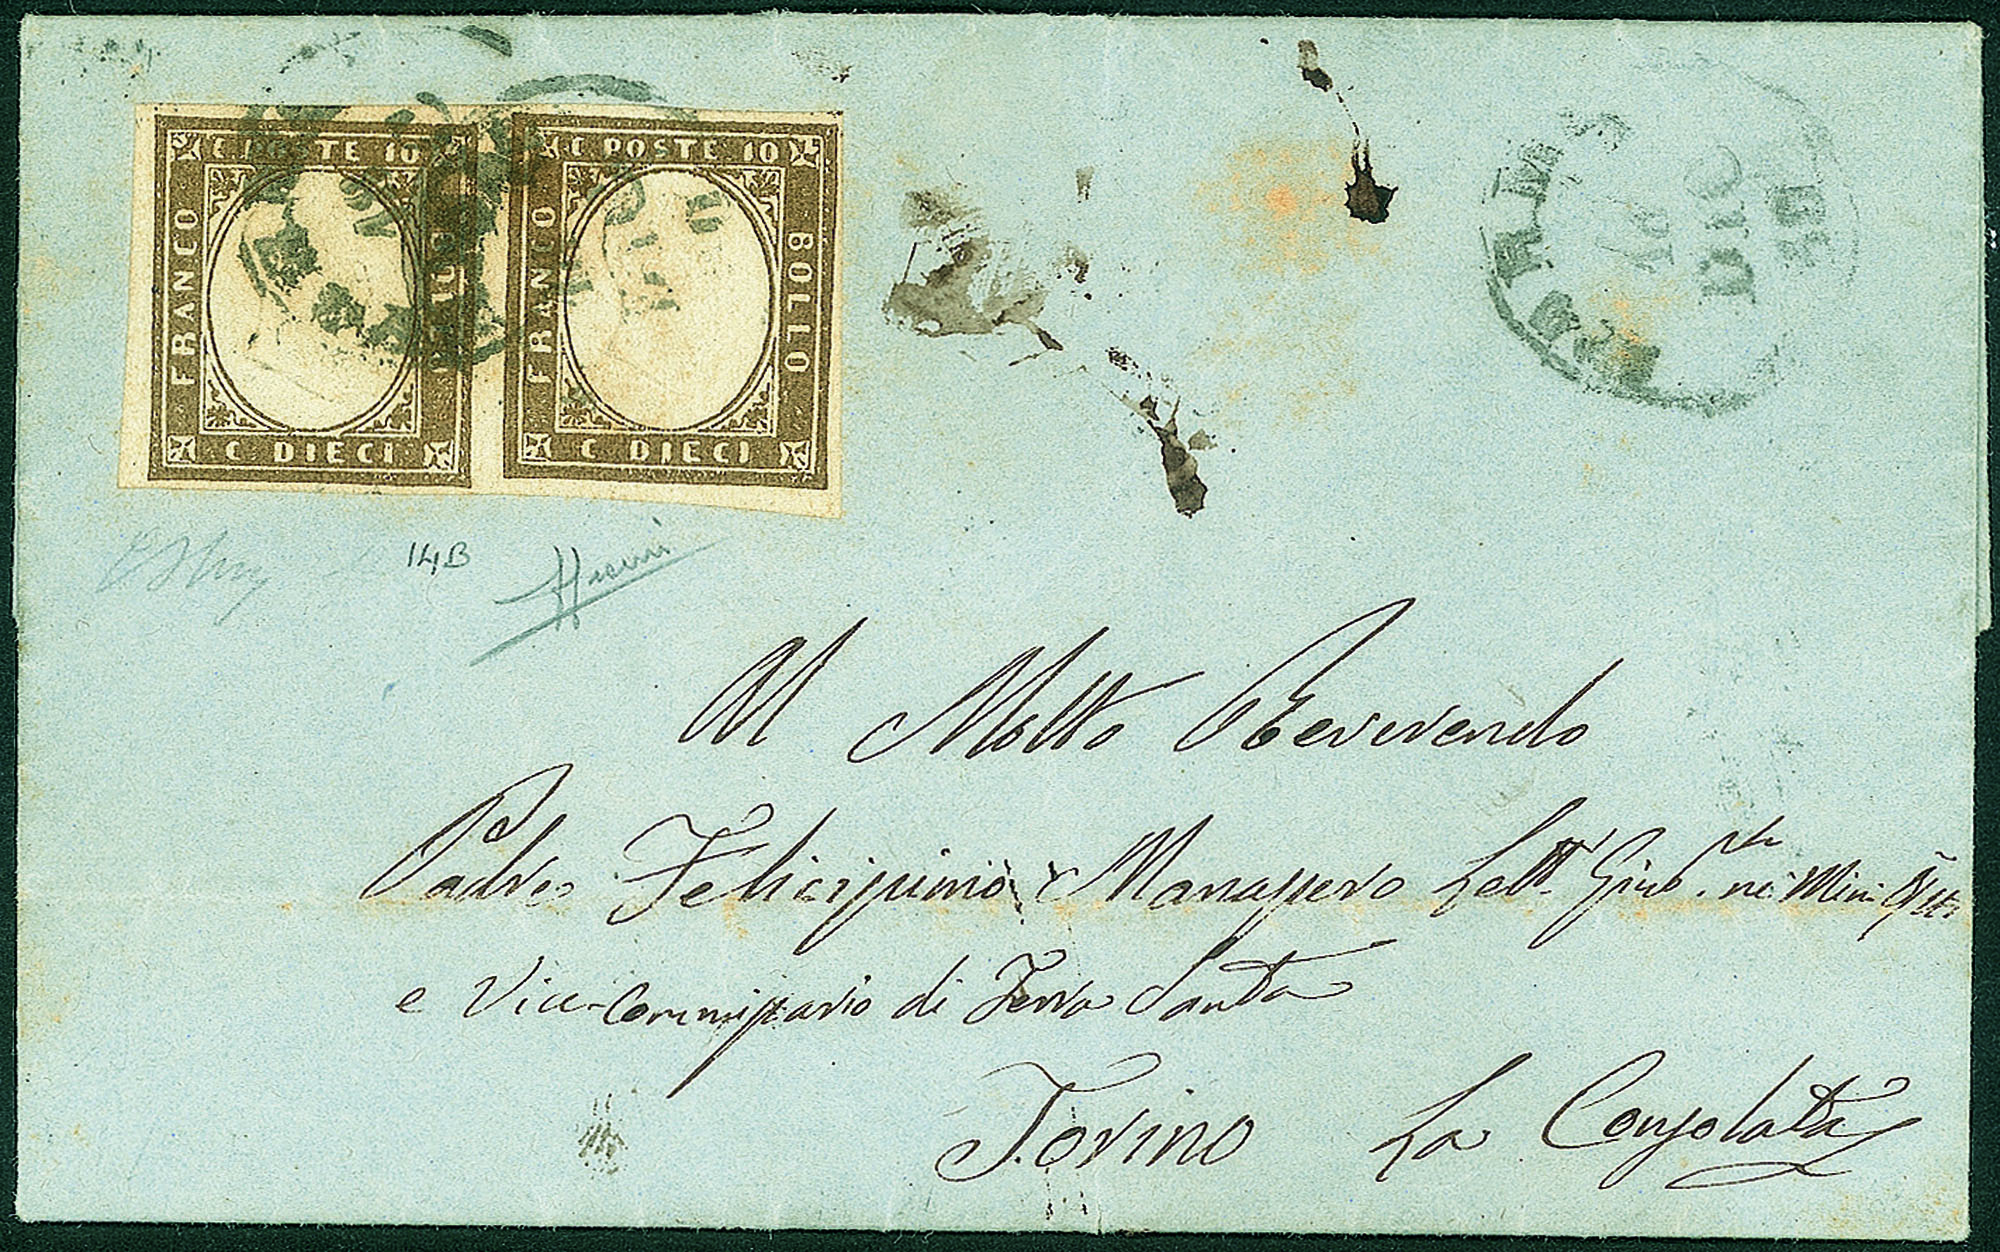 C. POSTE 10
FRANCO
BOLLO
C DIECI
C POSTE 10
FRANCO
BOLLO
C DIECI
DIC
14B
Al Molto Reverendo
Padre Felicissimo Manassero Lett. Giub. ne' Min.
e Vice-Commissario di Terra Santa
Torino La Consolata